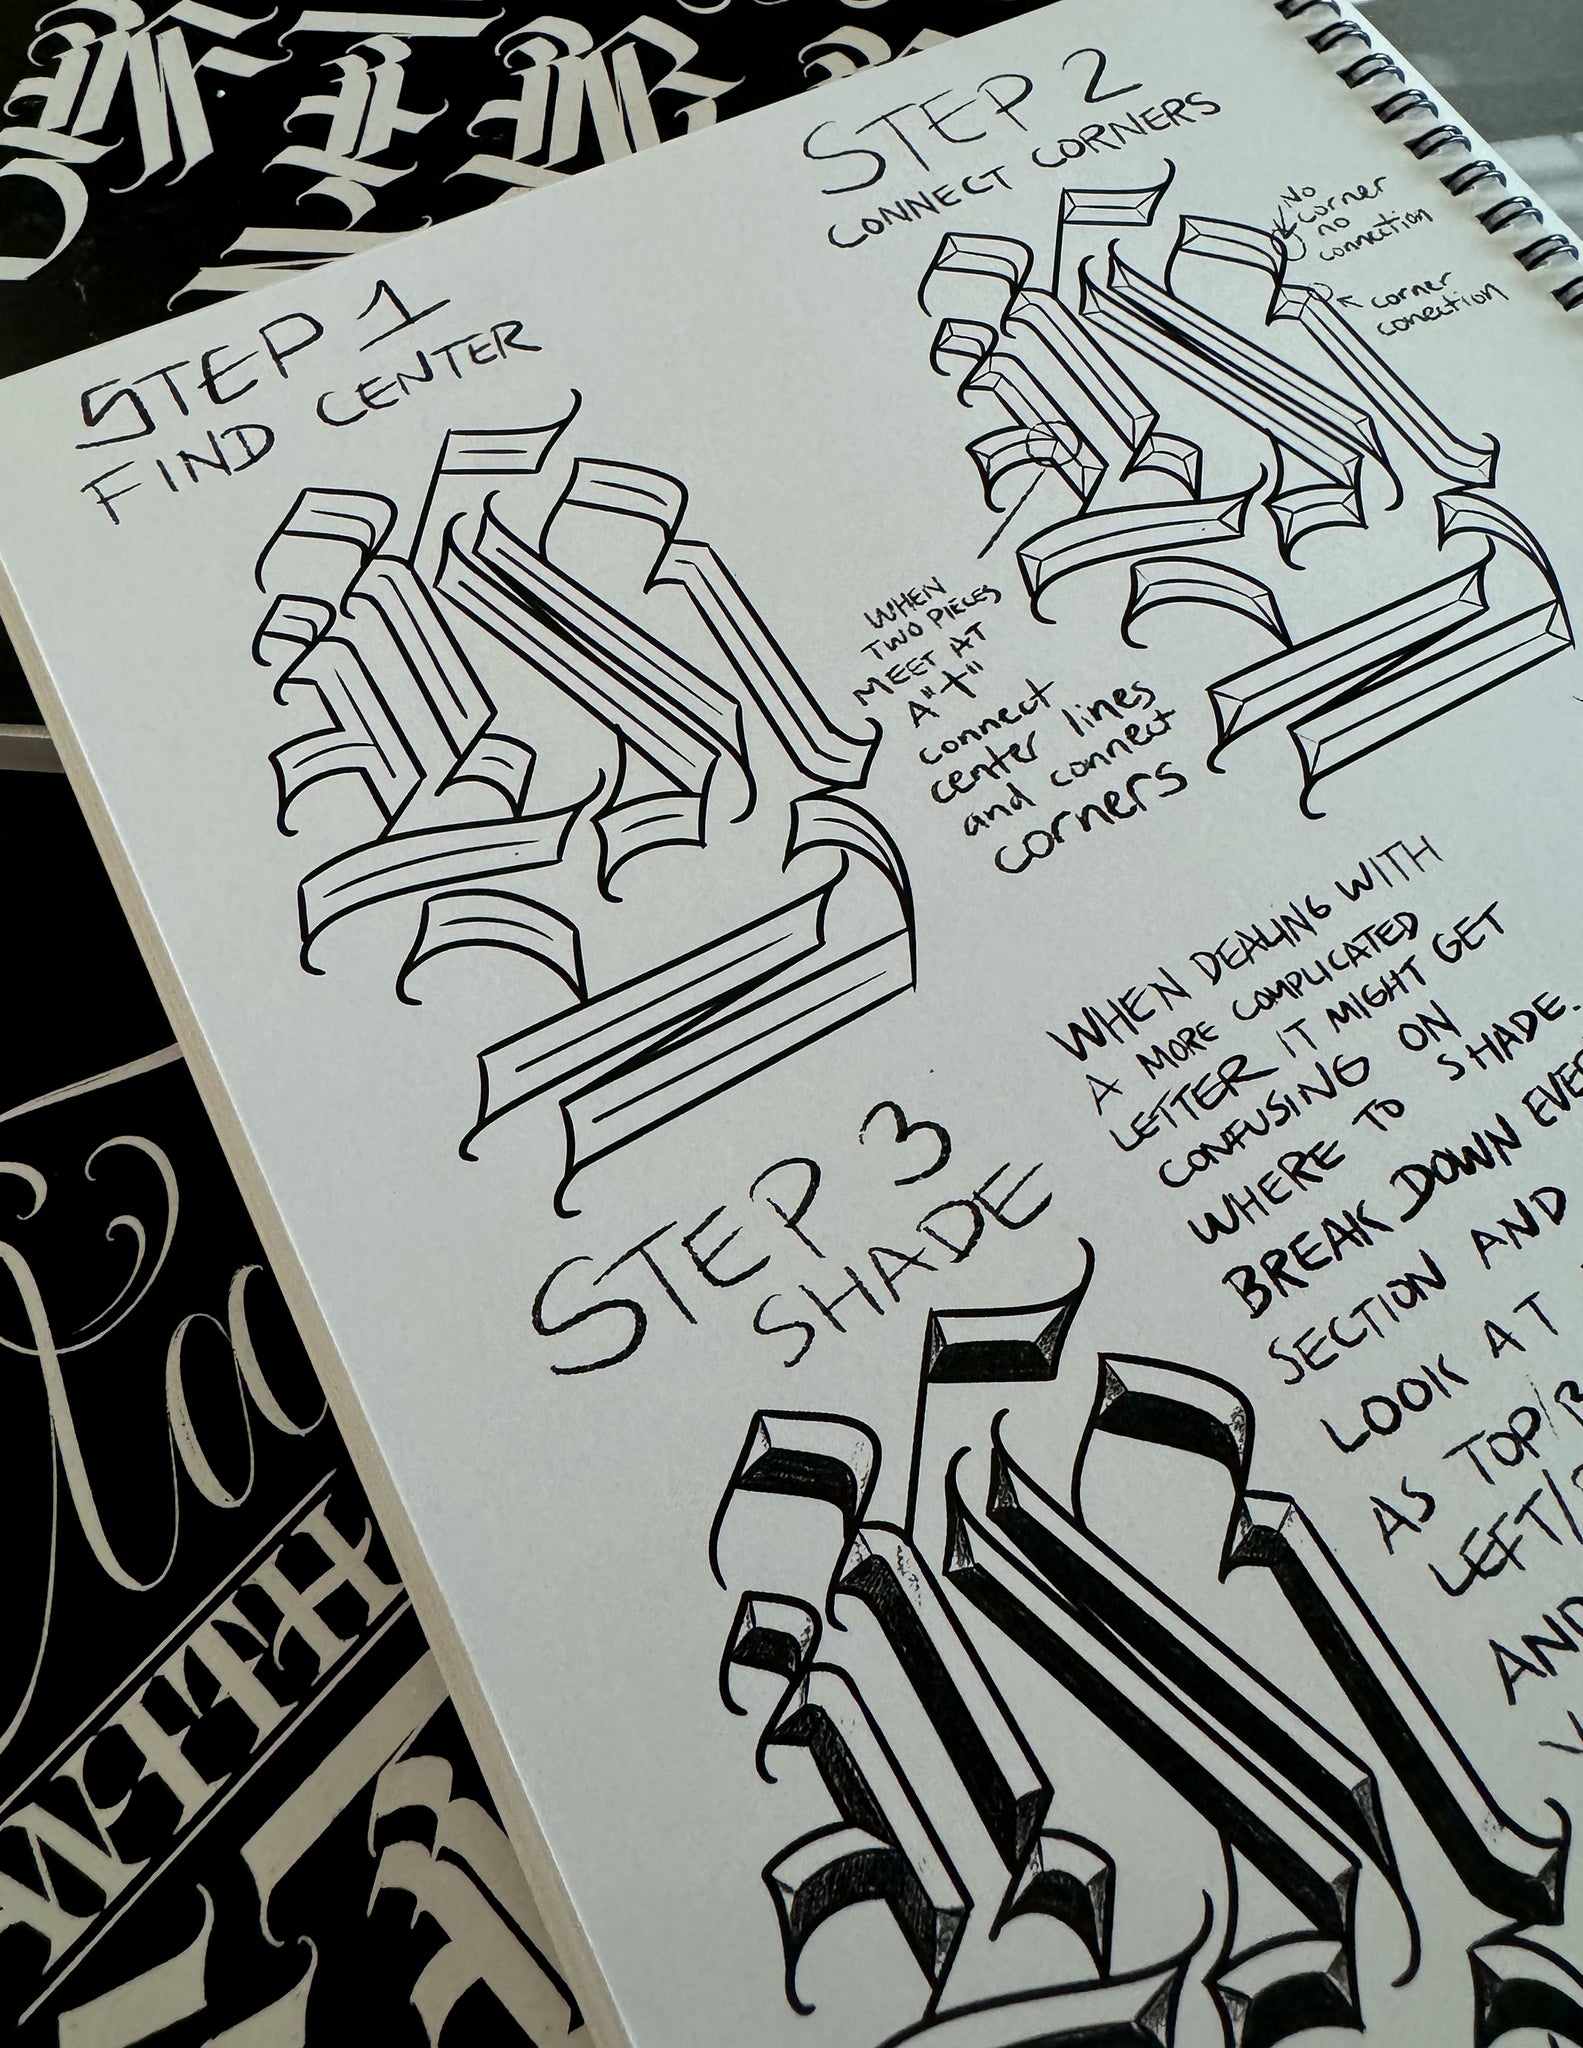 STEP 1
FIND CENTER
STEP 2
CONNECT CORNERS
No
corner
no
connection
corner
conection
WHEN
TWO PIECES
MEET AT
A "t"
connect
center lines
and connect
corners
WHEN DEALING WITH
A MORE COMPLICATED
LETTER IT MIGHT GET
CONFUSING ON
WHERE TO SHADE.
BREAK DOWN
SECTION AND
LOOK AT
AS TOP/
LEFT/
AND
STEP 3
SHADE
WITH